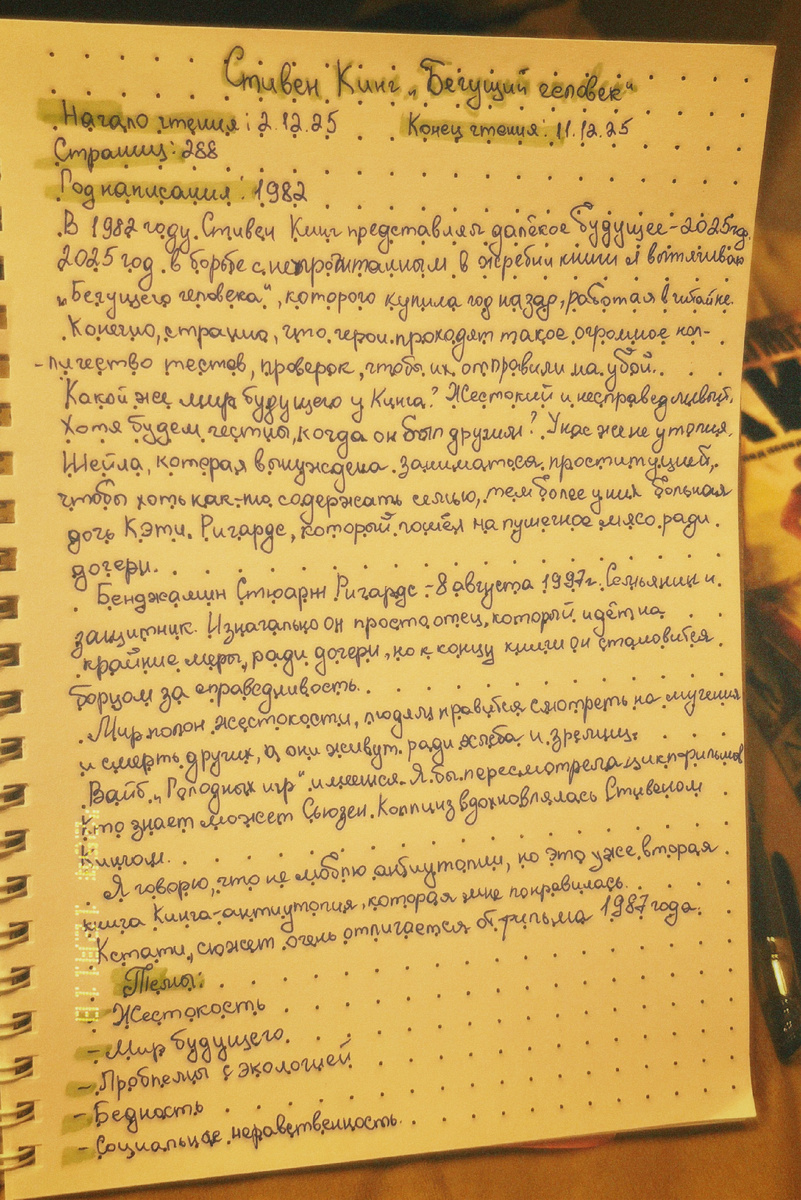 Стивен Кинг „Бегущий человек“
Начало чтения: 2.12.25 Конец чтения: 11.12.25
Страниц: 288
Год написания: 1982
В 1982 году Стивен Кинг представлял далёкое будущее - 2025 год.
2025 год в борьбе с непрочитанным в жребии книги я вытягиваю
„Бегущего человека“, которого купила год назад, работая в читайке.
Конечно, странно, что герои проходят такое огромное кол-
-личество тестов, проверок, чтобы их отправили на убой.
Какой же мир будущего у Кинга? Жестокий и несправедливый.
Хотя будем честны, когда он был другим? У нас же не утопия.
Шейла, которая вынуждена заниматься проституцией,
чтобы хоть как-то содержать семью, тем более у них больная
дочь Кэти. Ричардс, который пошёл на пушечное мясо ради
дочери.
Бенджамин Стюарт Ричардс - 8 августа 1997г. Семьянин и
защитник. Изначально он просто отец, который идёт на
крайние меры, ради дочери, но к концу книги он становится
борцом за справедливость.
Мир полон жестокости, людям нравится смотреть на мучения
и смерть других, а они живут ради хлеба и зрелищ.
Вайб „Голодных игр“ имеется. Я бы пересмотрела цикл фильмов
то знает может Сьюзен Коллинз вдохновлялась Стивеном
Кингом.
Я говорю, что не люблю антиутопии, но это уже вторая
книга Кинга-антиутопия, которая мне понравилась.
Кстати, сюжет очень отличается от фильма 1987 года.
Темы:
- Жестокость
- Мир будущего
- Проблемы с экологией
- Бедность
- Социальное неравственность